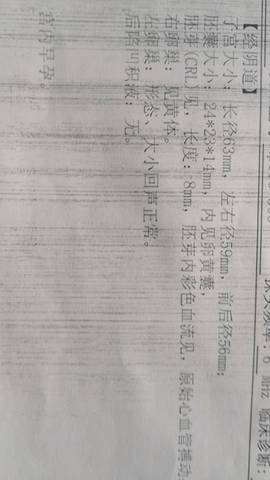 频率：6 MHz 临床诊断：
【经阴道】
子宫大小：长径63mm，左右径59mm，前后径56mm；
胚囊大小：24*23*14mm，内见卵黄囊，
胚芽(CRL)见，长度：8mm，胚芽内彩色血流见，原始心血管搏动
右卵巢：见黄体。
左卵巢：形态、大小回声正常。
后陷凹积液：无。
宫内早孕。